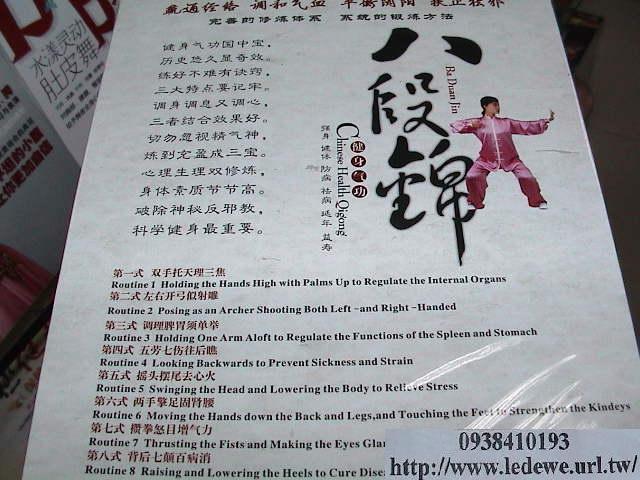 疏通经络 调和气血 平衡阴阳 扶正祛邪
完善的修炼体系 系统的锻炼方法
健身气功国中宝，
历史悠久显奇效。
练好不难有诀窍，
三大特点要记牢。
调身调息又调心，
三者结合效果好。
切勿忽视精气神，
炼到充盈成三宝。
心理生理双修炼，
身体素质节节高。
破除神秘反邪教，
科学健身最重要。
八段锦
Ba Duan Jin
健身气功
Chinese Health Qigong
强身 健体 防病 祛病 延年 益寿
水漾灵动
肚皮舞
第一式 双手托天理三焦
Routine 1 Holding the Hands High with Palms Up to Regulate the Internal Organs
第二式 左右开弓似射雕
Routine 2 Posing as an Archer Shooting Both Left -and Right -Handed
第三式 调理脾胃须单举
Routine 3 Holding One Arm Aloft to Regulate the Functions of the Spleen and Stomach
第四式 五劳七伤往后瞧
Routine 4 Looking Backwards to Prevent Sickness and Strain
第五式 摇头摆尾去心火
Routine 5 Swinging the Head and Lowering the Body to Relieve Stress
第六式 两手攀足固肾腰
Routine 6 Moving the Hands down the Back and Legs,and Touching the Feet to Strengthen the Kindeys
第七式 攒拳怒目增气力
Routine 7 Thrusting the Fists and Making the Eyes Glar
第八式 背后七颠百病消
Routine 8 Raising and Lowering the Heels to Cure Dise
0938410193
http://www.ledewe.url.tw/